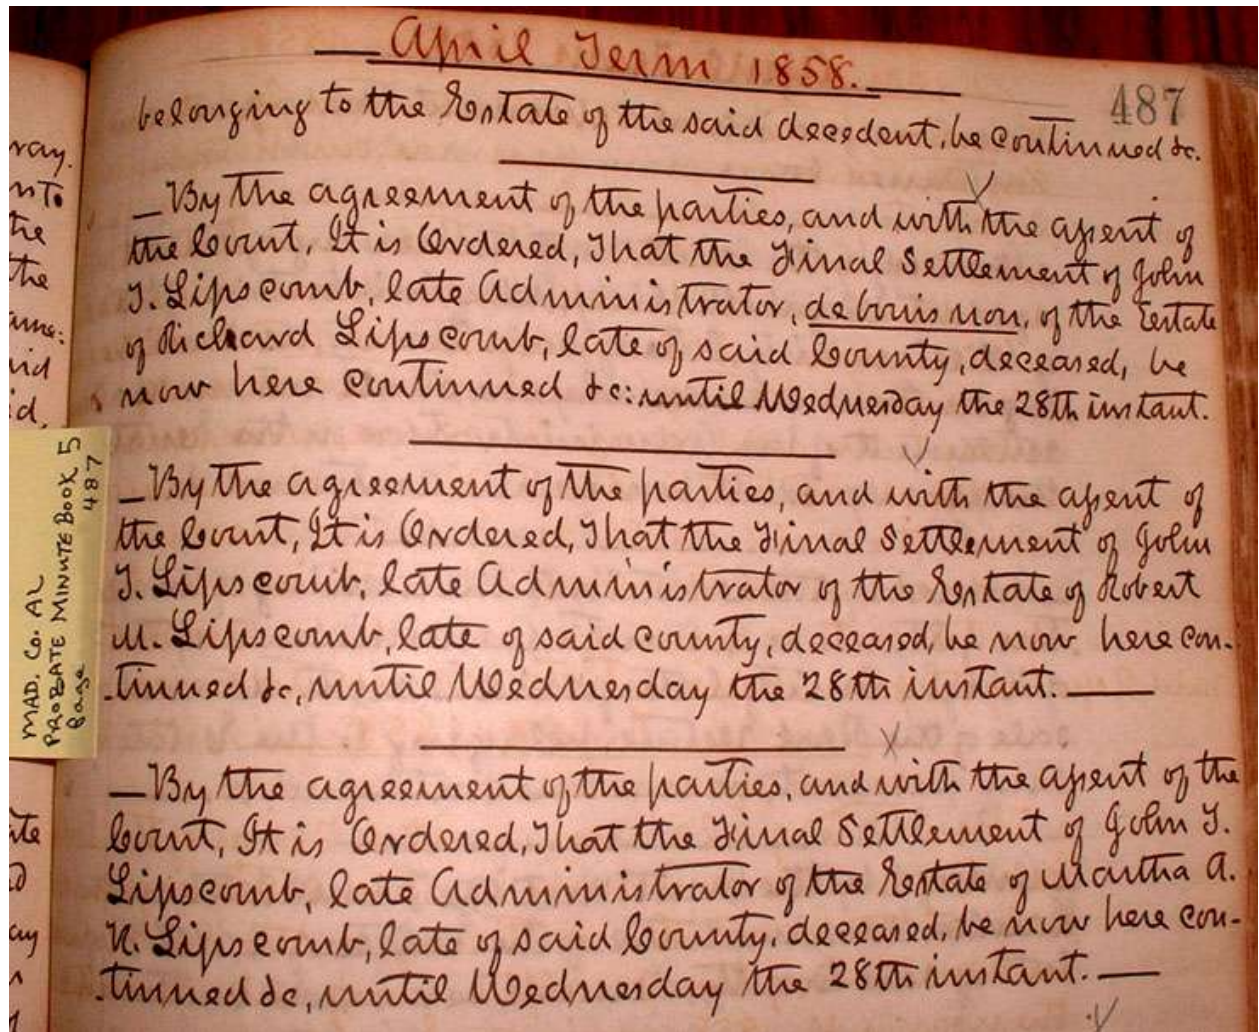 April Term 1858.
487
belonging to the Estate of the said decedent, be continued &c.
By the agreement of the parties, and with the assent of
the Court, It is Ordered, That the Final Settlement of John
T. Lipscomb, late Administrator, de bonis non, of the Estate
of Richard Lipscomb, late of said County, deceased, be
now here continued &c: until Wednesday the 28th instant.
By the agreement of the parties, and with the assent of
the Court, It is Ordered, That the Final Settlement of John
T. Lipscomb, late Administrator of the Estate of Robert
M. Lipscomb, late of said county, deceased, be now here con-
tinued &c, until Wednesday the 28th instant.
By the agreement of the parties, and with the assent of the
Court, It is Ordered, That the Final Settlement of John T.
Lipscomb, late Administrator of the Estate of Martha A.
N. Lipscomb, late of said County, deceased, be now here con-
tinued &c, until Wednesday the 28th instant.
MAD. Co. AL
PROBATE MINUTE BOOK 5
Page 487